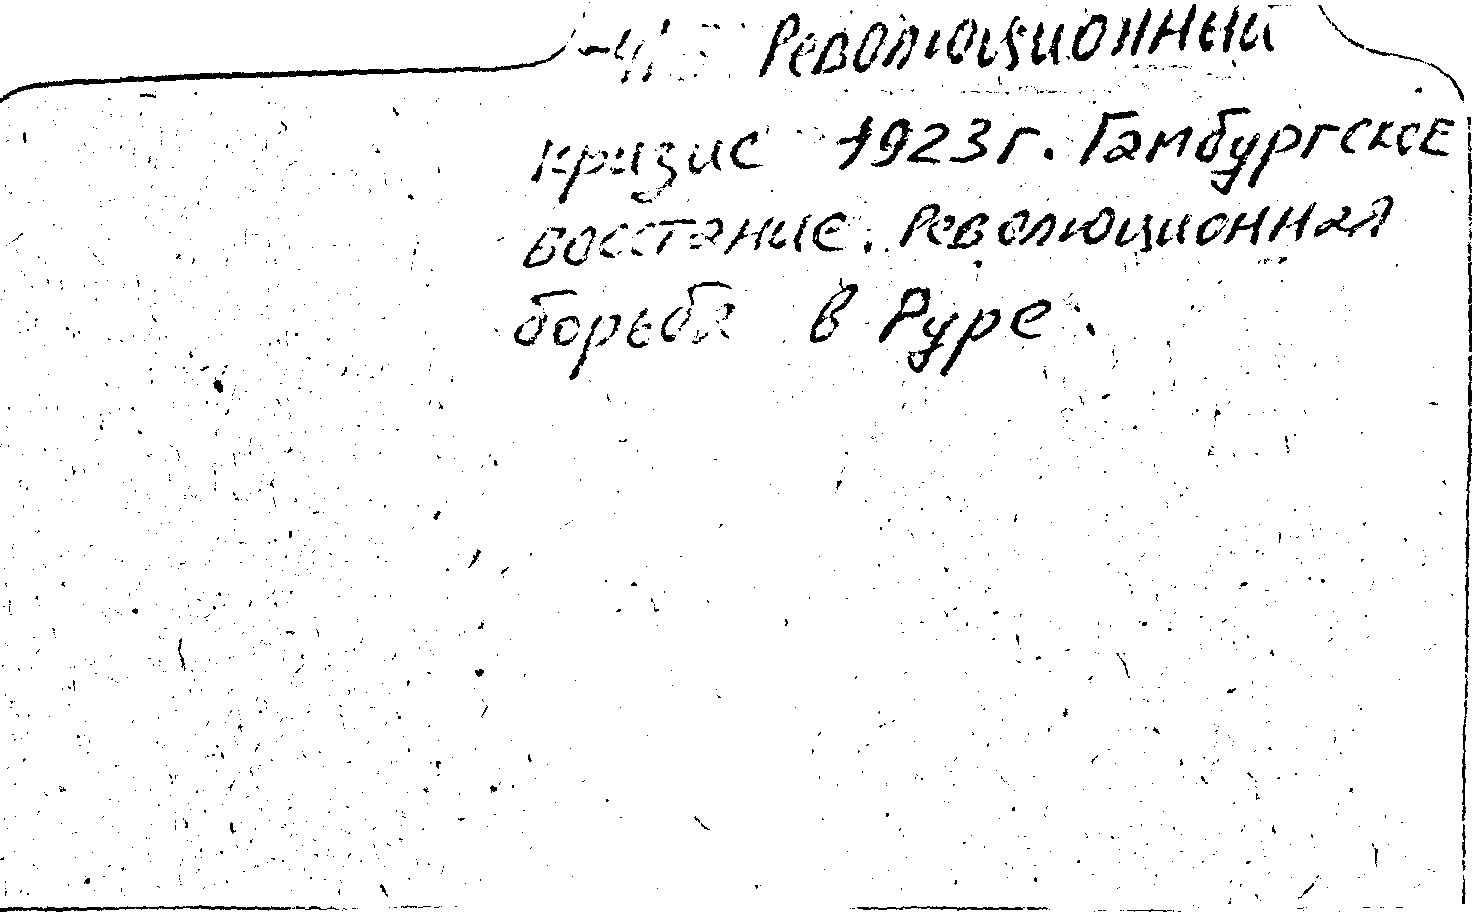 Революционный
кризис 1923г. Гамбургское
восстание. Революционная
борьба в Руре.